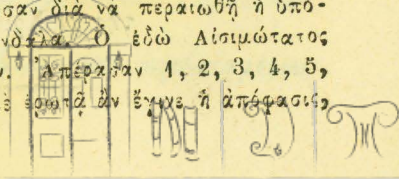 σαν διὰ νὰ περαιωθῇ ἡ ὑπό-
νδαλα. Ὁ ἐδῶ Αἰσιμώτατος
ν. Ἀπέρασαν 1, 2, 3, 4, 5,
ὲ ἐρωτᾷ ἂν ἔγινε ἡ ἀπόφασις,